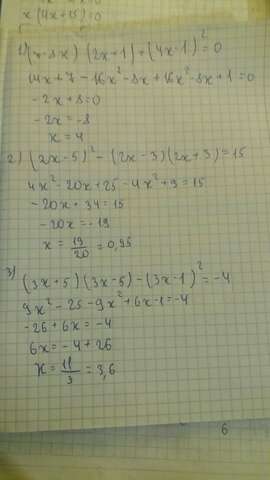 x(4x+15)=0
1) (7-8x)(2x+1)+(4x-1)²=0
14x+7-16x²-8x+16x²-8x+1=0
-2x+8=0
-2x=-8
x=4
2) (2x-5)²-(2x-3)(2x+3)=15
4x²-20x+25-4x²+9=15
-20x+34=15
-20x=-19
x=19/20=0,95
3) (3x+5)(3x-5)-(3x-1)²=-4
9x²-25-9x²+6x-1=-4
-26+6x=-4
6x=-4+26
x=11/3=3,6
6